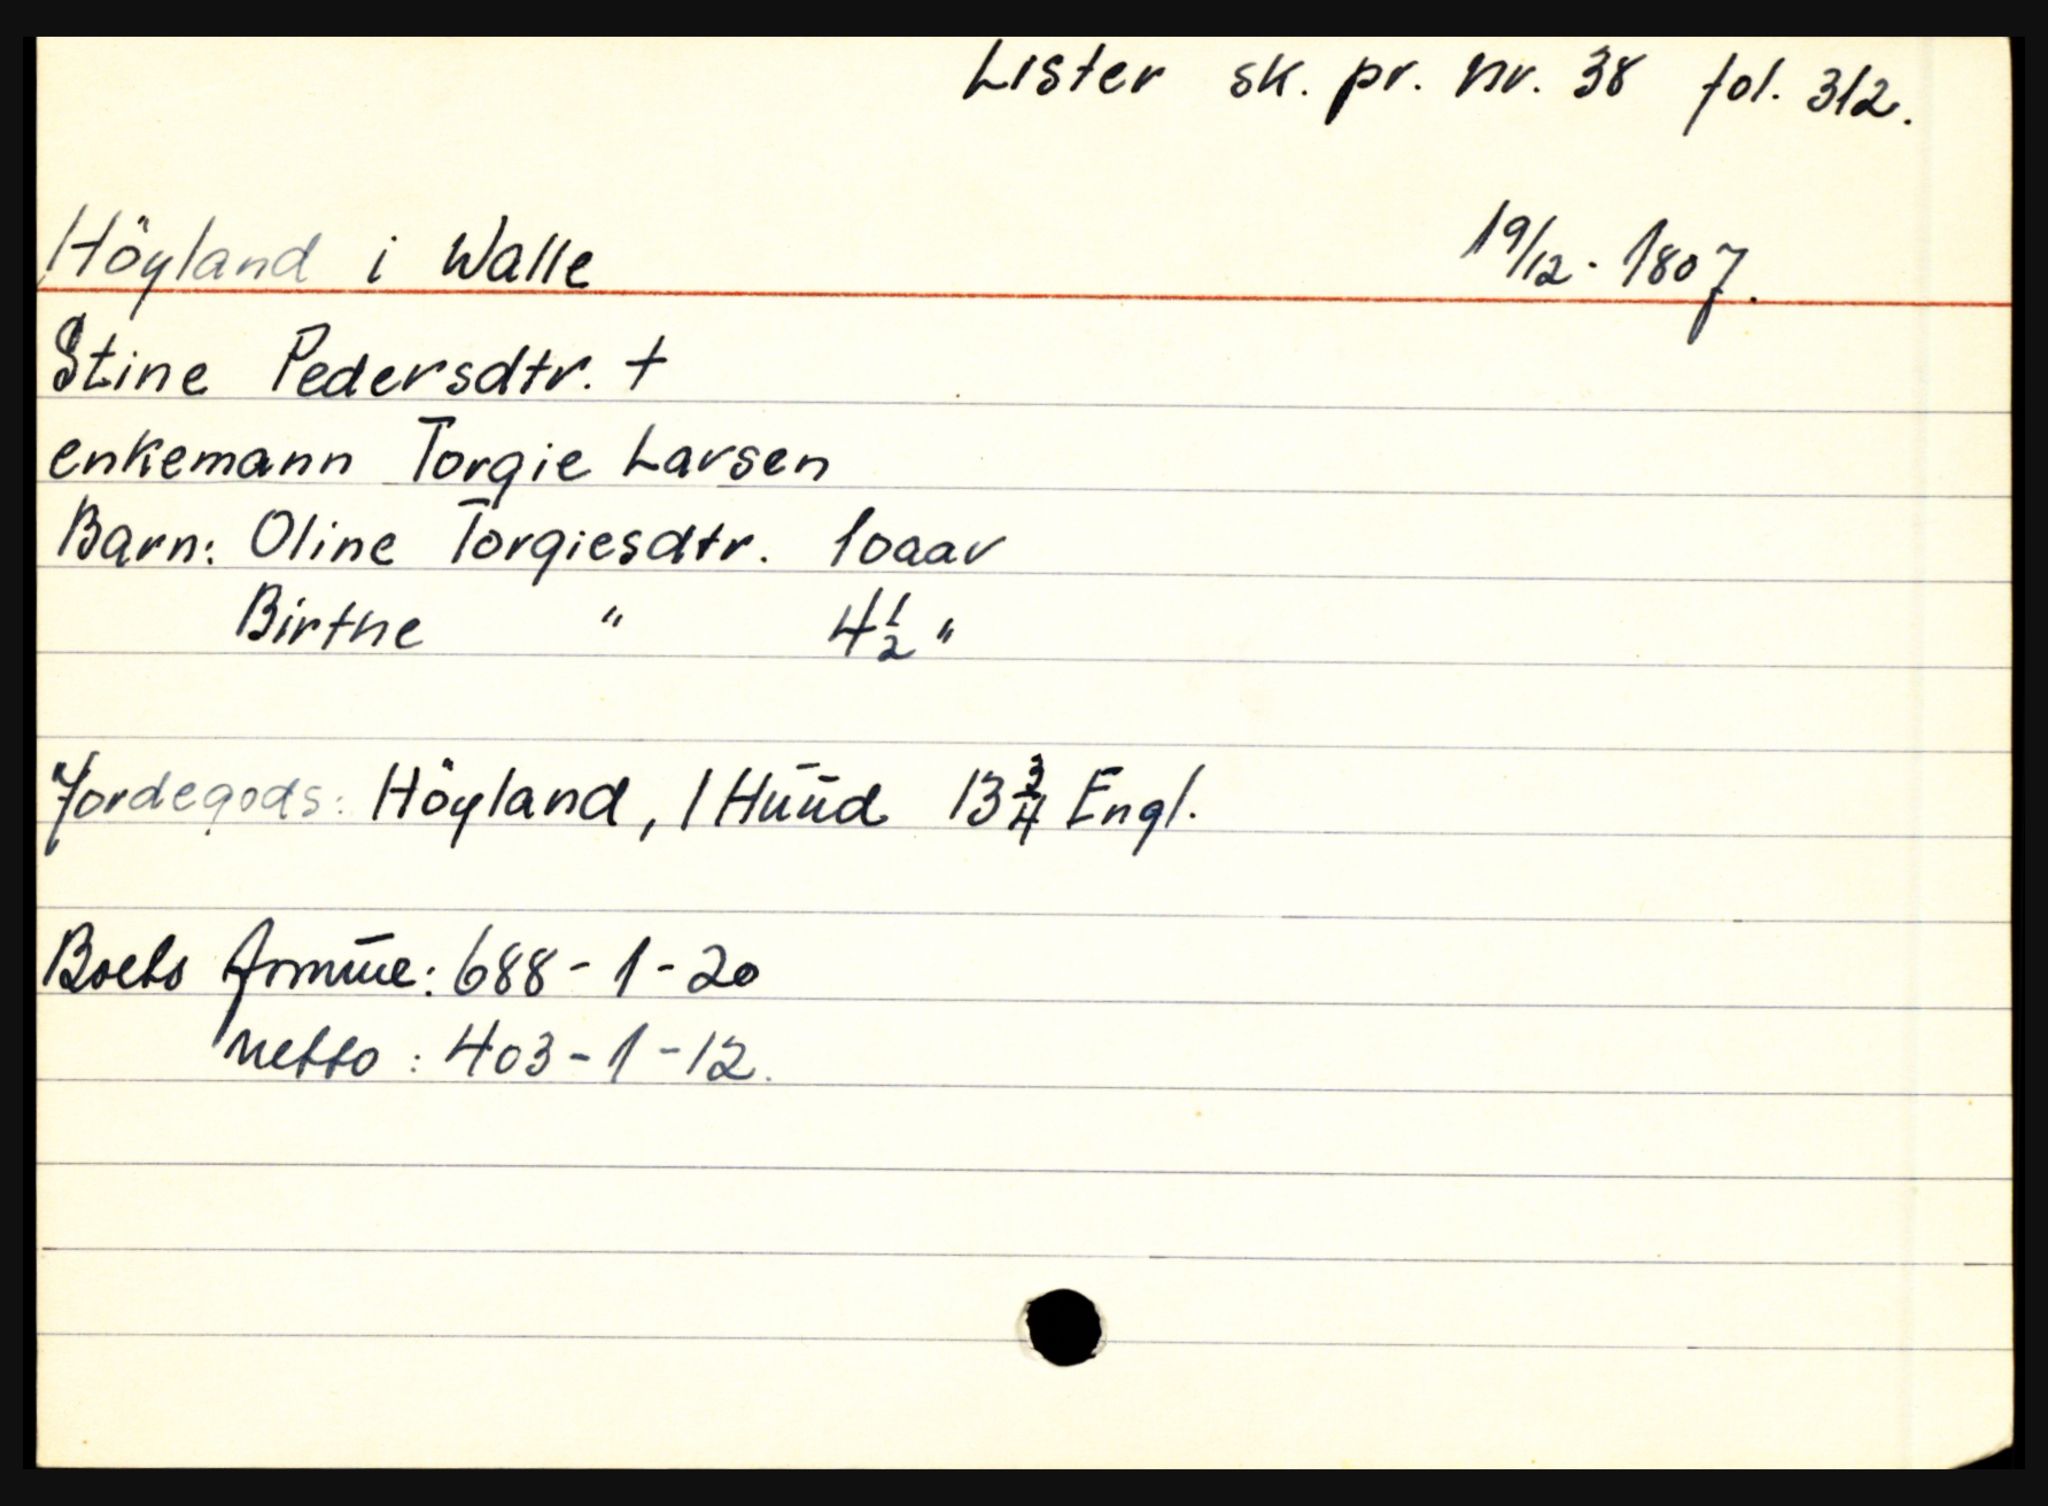 Lister sk. pr. nr. 38 fol. 312.
Höyland i Walle 19/12 - 1807.
Stine Pedersdtr. +
enkemann Torgie Larsen
Barn: Oline Torgiesdtr. 10 aar
Birthe " 4 1/2 "
Jordegods: Höyland, 1 Huud 13 3/4 Engl.
Boets formue: 688 - 1 - 20
netto: 403 - 1 - 12.